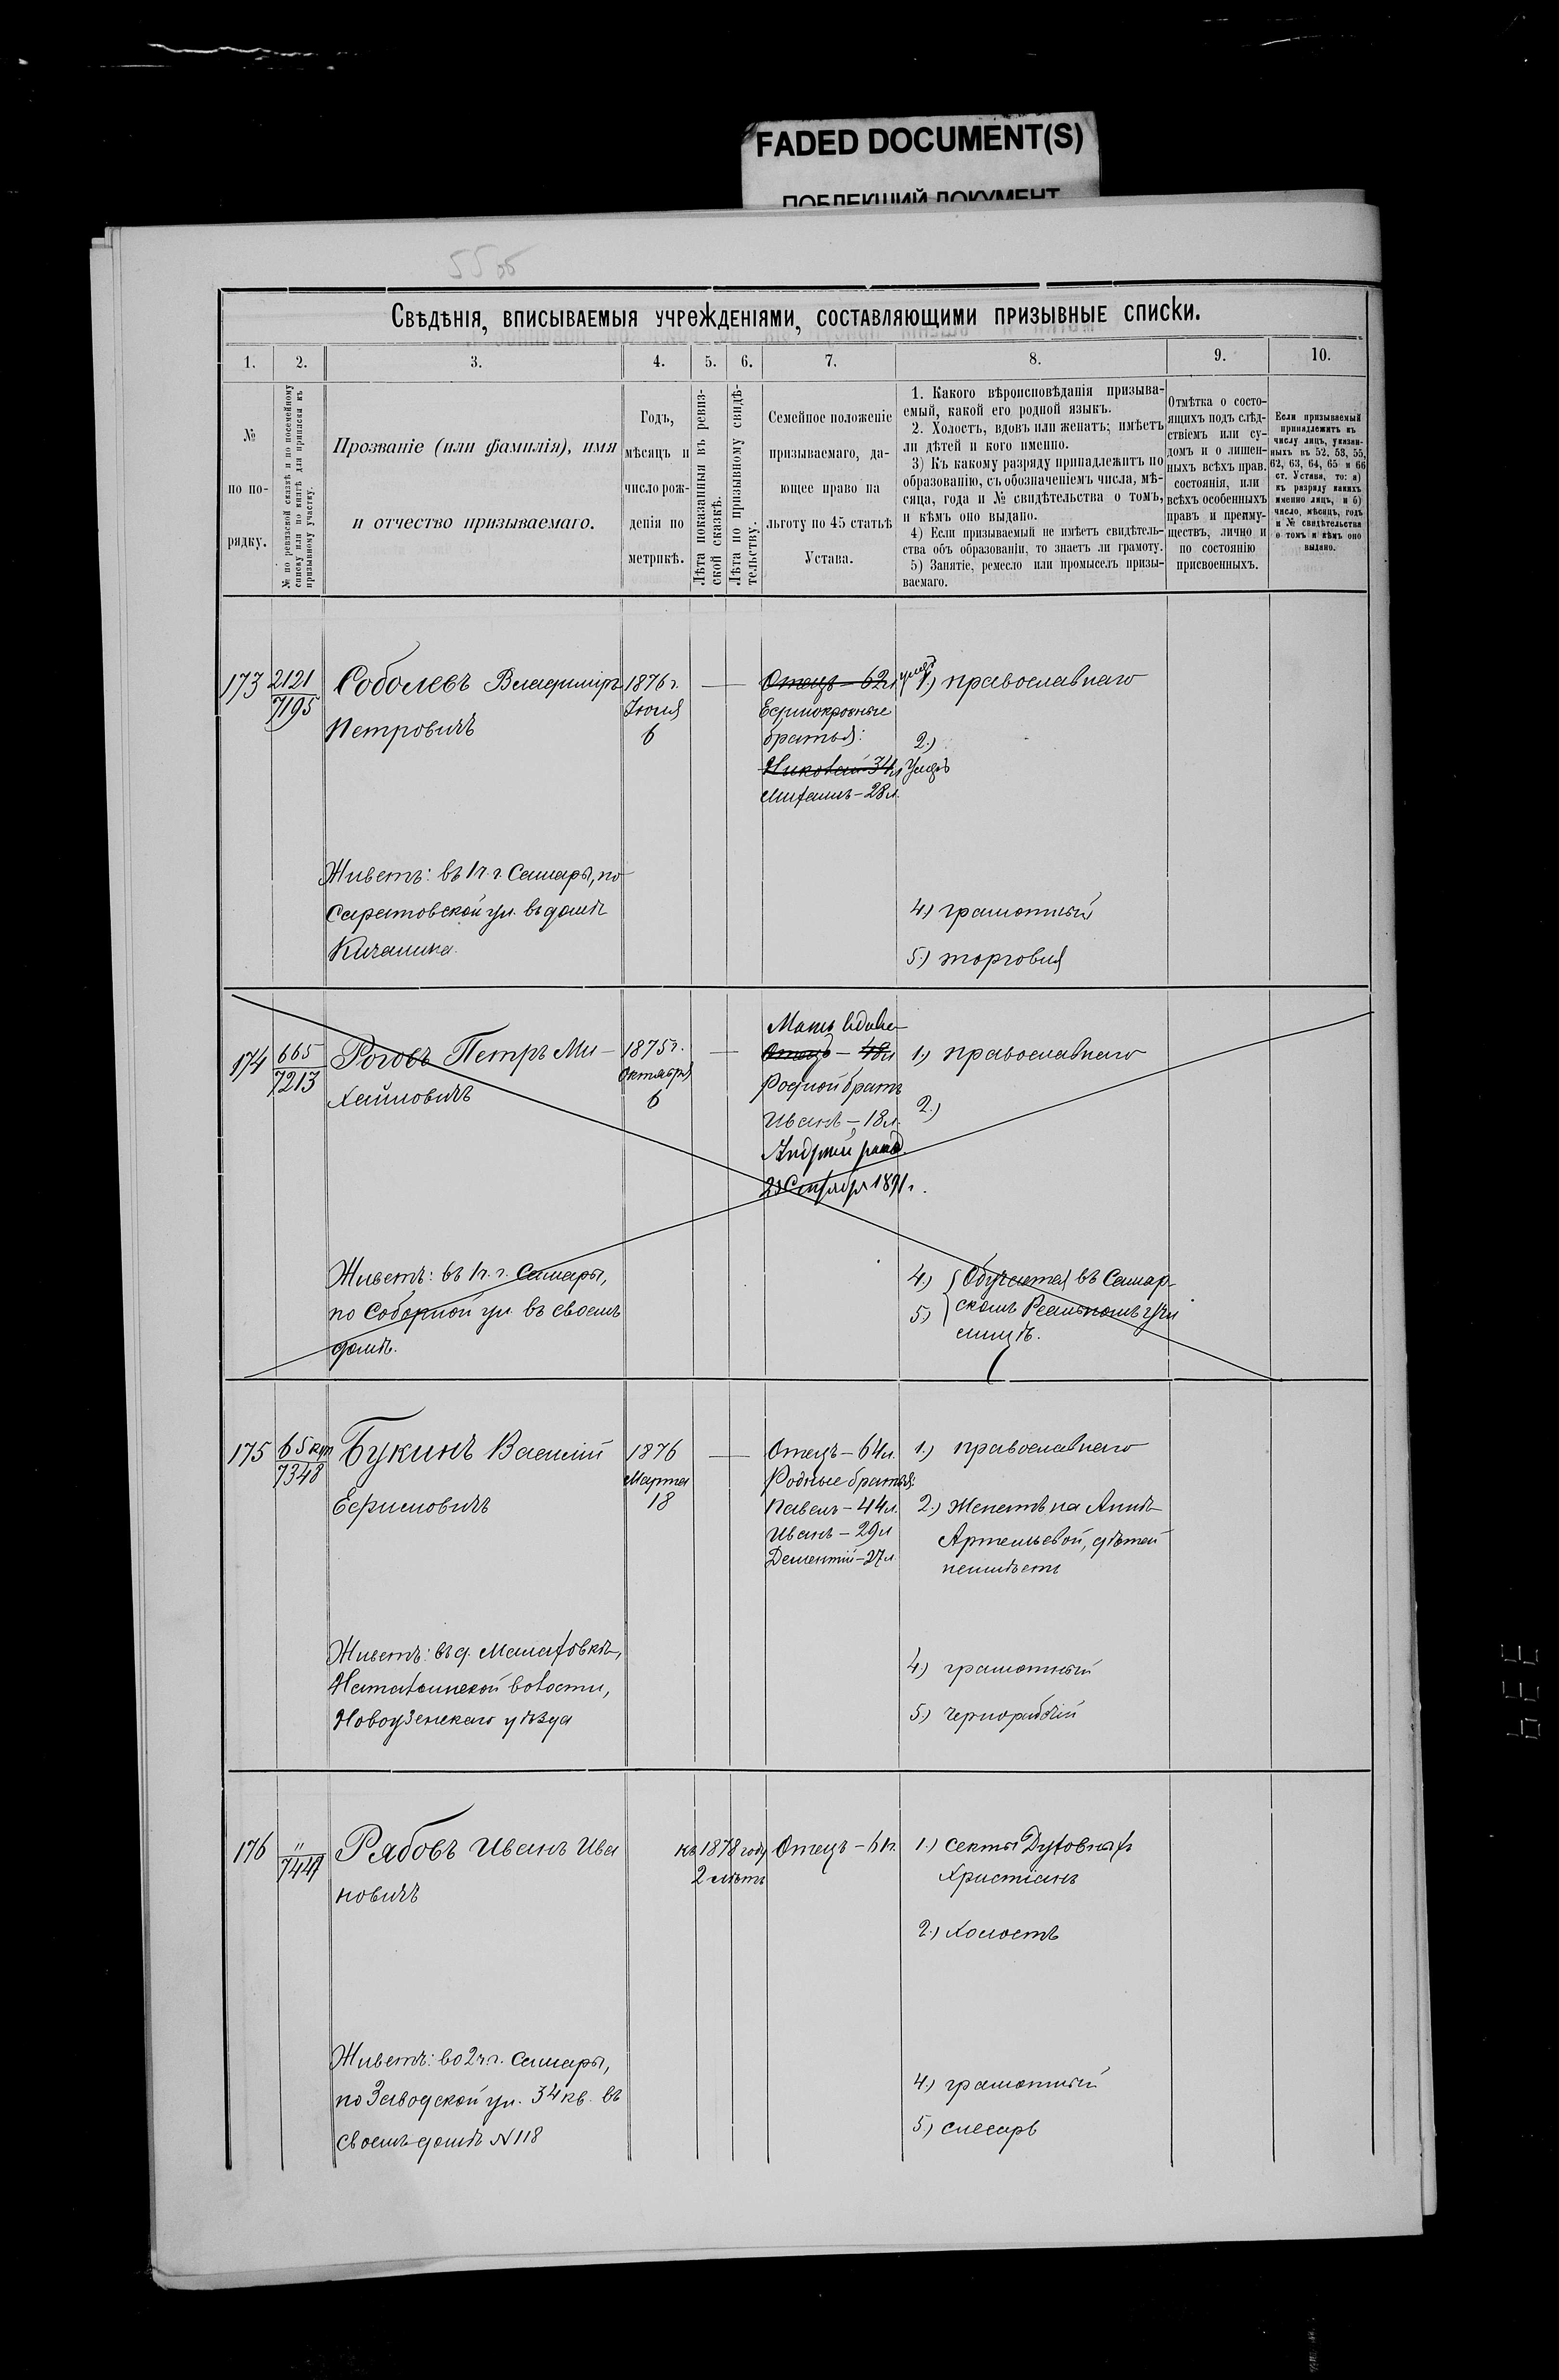 FADED DOCUMENT(S)
ПОБЛЕКШИЙ ДОКУМЕНТ
55 об
Свѣдѣнія, вписываемыя учрежденіями, составляющими призывные списки.
1. 2. 3. 4. 5. 6. 7. 8. 9. 10.
№
по по-
рядку.
№ по ревизской сказкѣ и по посемейному
списку или по книгѣ для приписки къ
призывному участку.
Прозваніе (или фамилія), имя
и отчество призываемаго.
Годъ,
мѣсяцъ и
число рож-
денія по
метрикѣ.
Лѣта показанныя въ ревиз-
ской сказкѣ.
Лѣта по призывному свидѣ-
тельству.
Семейное положеніе
призываемаго, да-
ющее право на
льготу по 45 статьѣ
Устава.
1. Какого вѣроисповѣданія призыва-
емый, какой его родной языкъ.
2. Холостъ, вдовъ или женатъ; имѣетъ
ли дѣтей и кого именно.
3) Къ какому разряду принадлежитъ по
образованію, съ обозначеніемъ числа, мѣ-
сяца, года и № свидѣтельства о томъ,
и кѣмъ оно выдано.
4) Если призываемый не имѣетъ свидѣтель-
ства объ образованіи, то знаетъ ли грамоту.
5) Занятіе, ремесло или промыселъ призы-
ваемаго.
Отмѣтка о состо-
ящихъ подъ слѣд-
ствіемъ или су-
домъ и о лишен-
ныхъ всѣхъ прав.
состоянія, или
всѣхъ особенныхъ
правъ и преиму-
ществъ, лично и
по состоянію
присвоенныхъ.
Если призываемый
принадлежитъ къ
числу лицъ, указан-
ныхъ въ 52, 53, 55,
62, 63, 64, 65 и 66
ст. Устава, то: а)
къ разряду какихъ
именно лицъ, и б)
число, мѣсяцъ, годъ
и № свидѣтельства
о томъ и кѣмъ оно
выдано.
173
2121
7195
Соболевъ Владиміръ
Петровичъ
1876 г.
Іюля
6
Отецъ – 62 л.
Единокровные
братья:
Николай – 34 л.
Михаилъ – 28 л.
1.) православнаго
2.)
4.) грамотный
5.) торговля
Живетъ: въ 1 ч. г. Самары, по
Саратовской ул. въ домѣ
174
665
7213
Роговъ Петръ Ми-
хайловичъ
1875 г.
Октября
6
Мать вдова
Отецъ – 48 л
Родной братъ
Иванъ – 18 л.
Андрей
1891 г.
1.) православнаго
2.)
4.) Обучается въ Самар-
5.) скомъ Реальномъ учи
лищѣ.
Живетъ: въ 1 ч. г. Самары,
по Соборной ул. въ своемъ
домѣ.
175
65 куп
7348
Букинъ Василій
Ефимовичъ
1876
Марта
18
Отецъ – 64 л.
Родные братья:
Павелъ – 44 л.
Иванъ – 29 л
Дементій – 27 л.
1.) православнаго
2.) Женатъ на Аннѣ
Артемьевой, дѣтей
неимѣетъ
4.) грамотный
5.) чернорабочій
Живетъ: въ д. Малаховкѣ,
волости,
Новоузенскаго уѣзда
176
"
7447
Рябовъ Иванъ Ива
новичъ
къ 1878 году
2 лѣтъ
Отецъ – 61 г.
1.) секты Духовныхъ
Христіанъ
2.) Холостъ
4.) грамотный
5.) слесарь
Живетъ: во 2 ч. г. Самары,
по Заводской ул. 34 кв. въ
своемъ домѣ №118